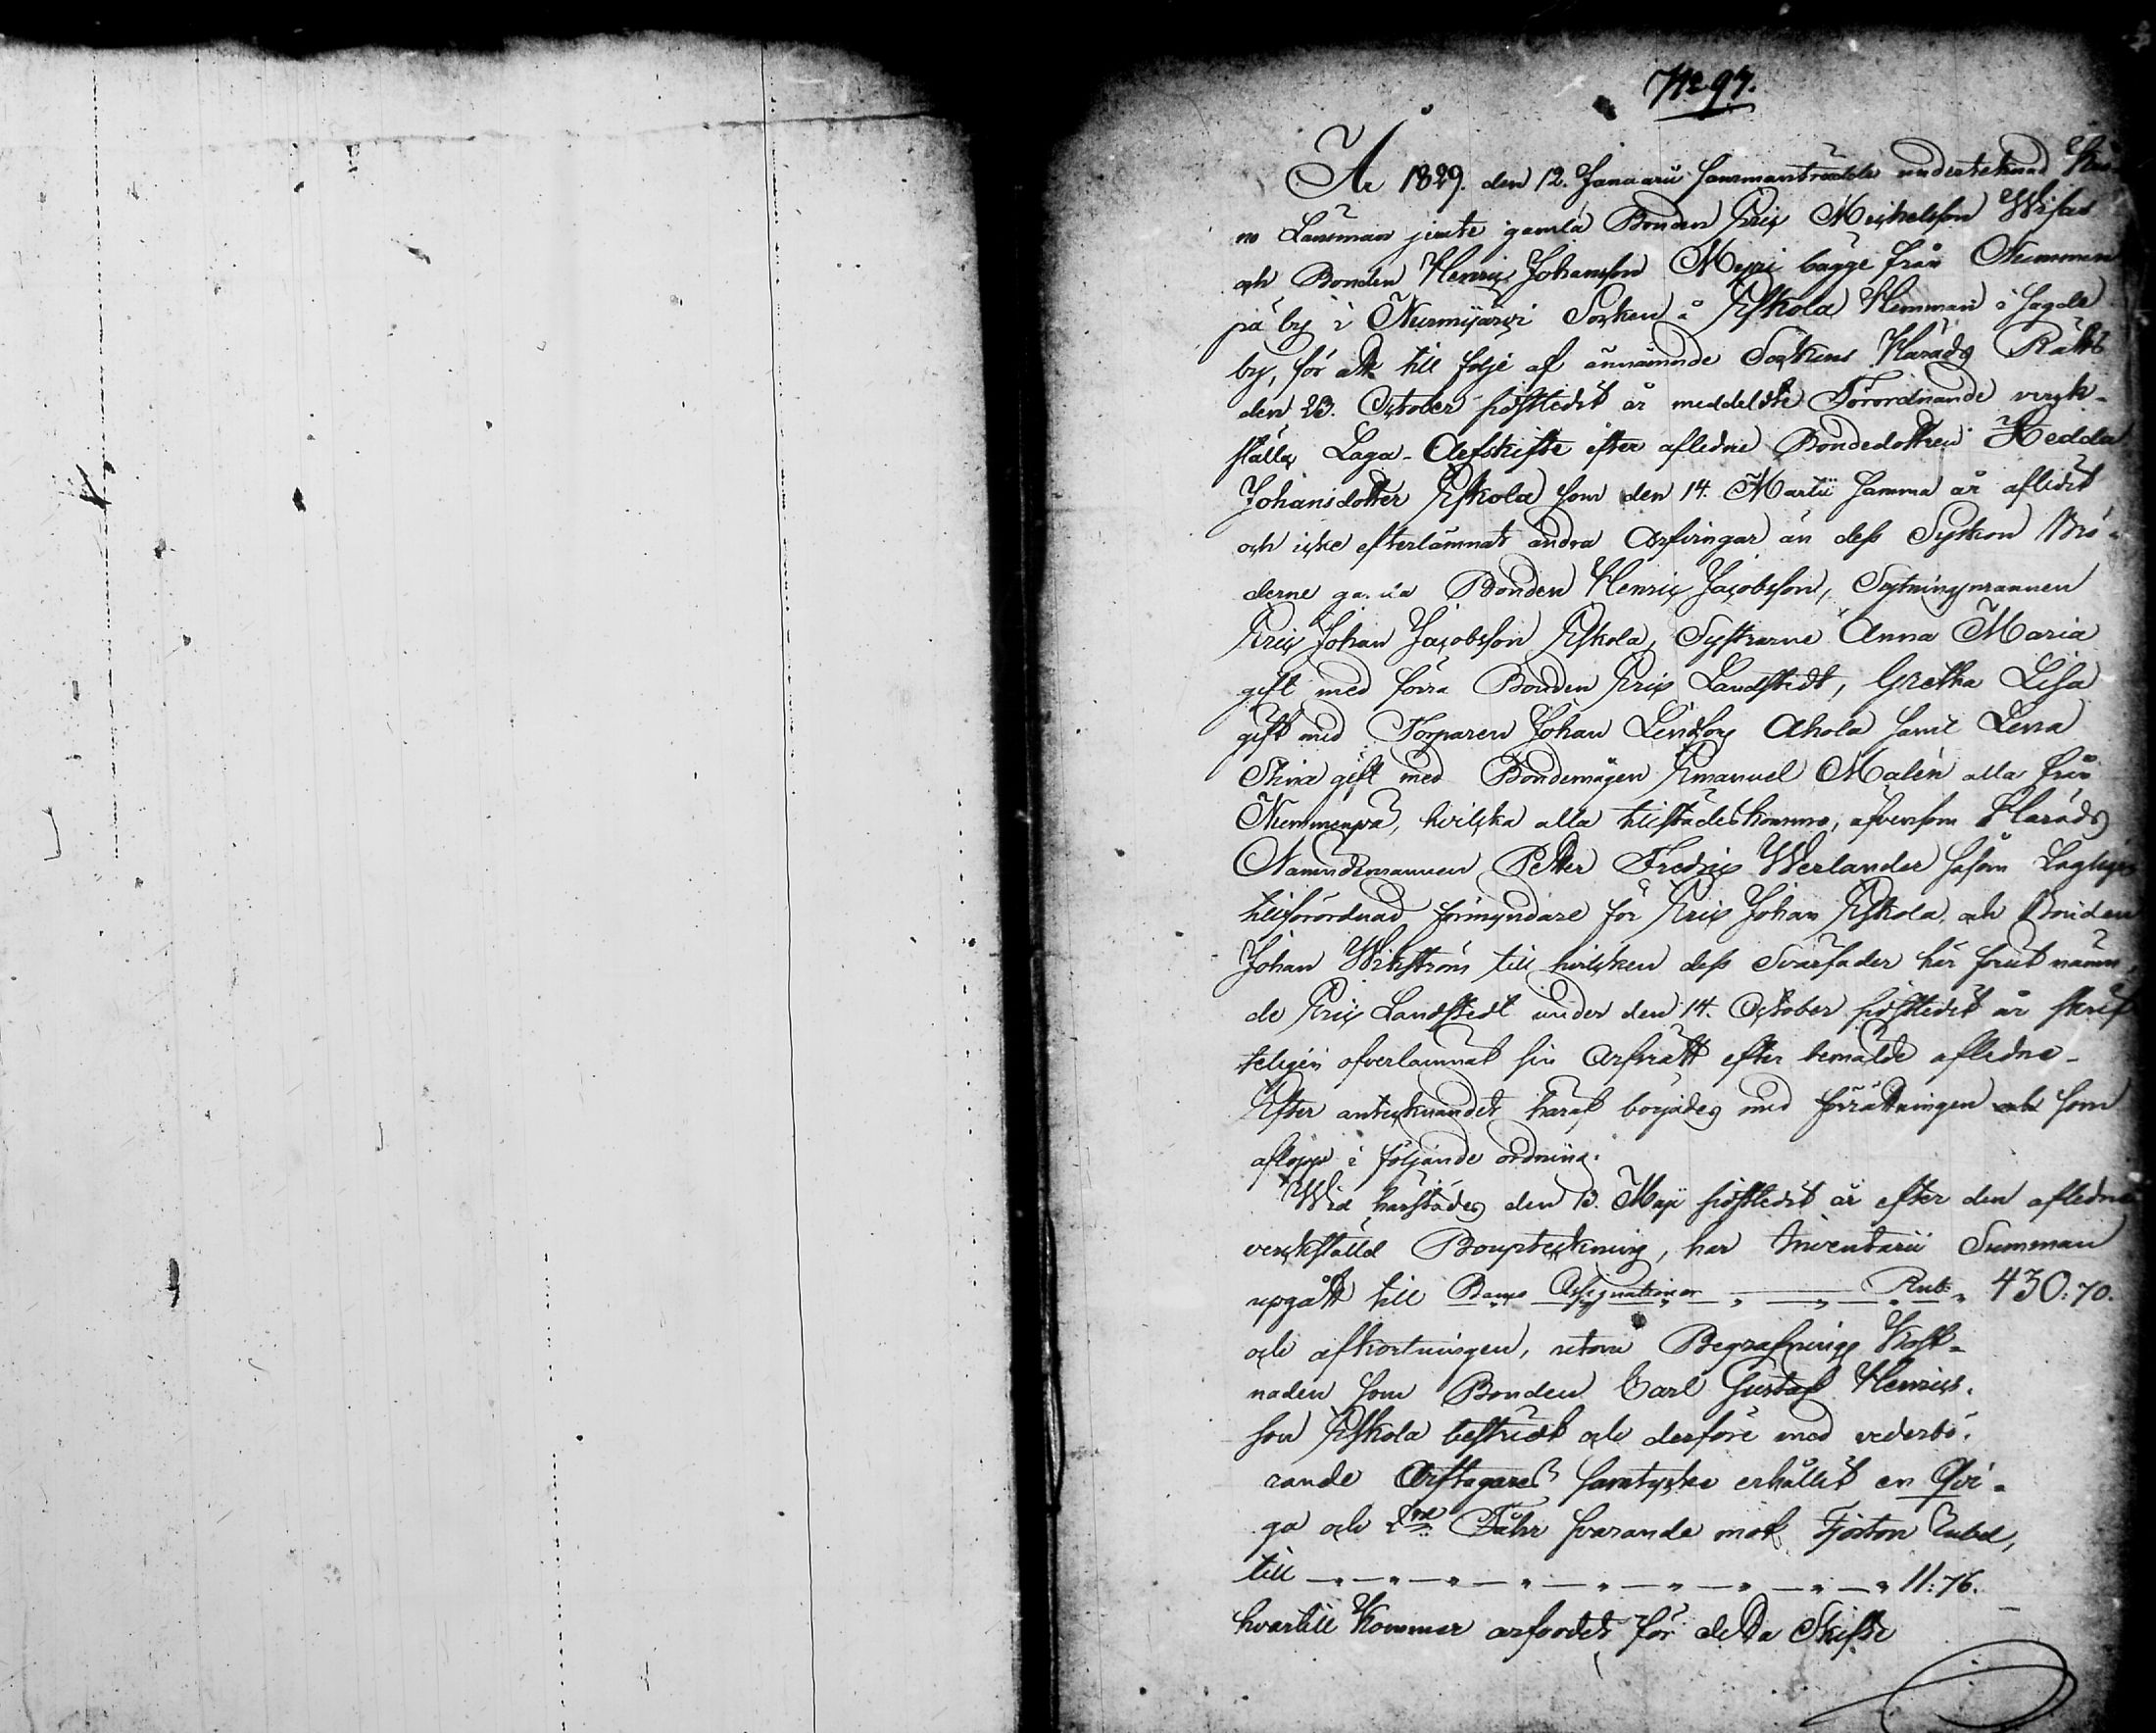 No 97.
År 1829. den 12. Januarii sammanträdde undertecknad Kro-
no Länsman jemte gamla Bonden Eric Michelsson Wifas
och Bonden Henric Johansson Myri bägge från Nummen
pä by i Nurmijärvi Socken å Eskola Hemman i sagde
by, för att till följe af ännämnde Sockens Härads Rätts
den 23. October sistledit år meddelte Förordnande verck-
ställa Laga Arfskifte efter aflidne Bondedottren Hedda
Johansdotter Eskola som den 14. Martii samma år aflidit
och icke efterlämnat andra Arfvingar än dess Syskon Brö-
derne ga. la Bonden Henric Jacobsson, Sytningsmannen
Eric Johan Jacobsson Eskola, Systrarne Anna Maria
gift med förra Bonden Eric Landstedt, Gretha Lisa
gift med Torparen Johan Lindfors Ahola samt Lena
Stina gift med Bondemågen Emanuel Malén alla från
Nummenpä, hvilcka alla tillstädeskommo, äfvensom Härads
Nämndemannen Petter Fredric Werlander såsom Lagligen
tillförordnad förmyndare för Eric Johan Eskola, och Bonden
Johan Wikström till hvilcken dess Svärfader här förut nämn-
de Eric Landstedt under den 14. October sistledit år skrif
teligen öfverlämnat sin Arfsrätt efter bemälde aflidne-
Efter antecknandet häraf börjades med förrättningen som
aflopp i följande ordning.
Wid härstädes den 13. Maji sistledit år efter den aflidne
verckstäld Bouptecknning, har Inventarii Summan
upgått till Banco Assignationer Rub. 430:70.
och afkortningen, utom Begrafnings Kost-
naden som Bonden Carl Gustaf Henrics-
son Eskola bestridt och derföre med vederbö-
rande Arftagares samtycke erhållit en Qvi-
ga och 2ne Fåhr svarande mot Fjorton Rubel,
till 11:76.
hvartill kommer arfvodet för detta Skifte